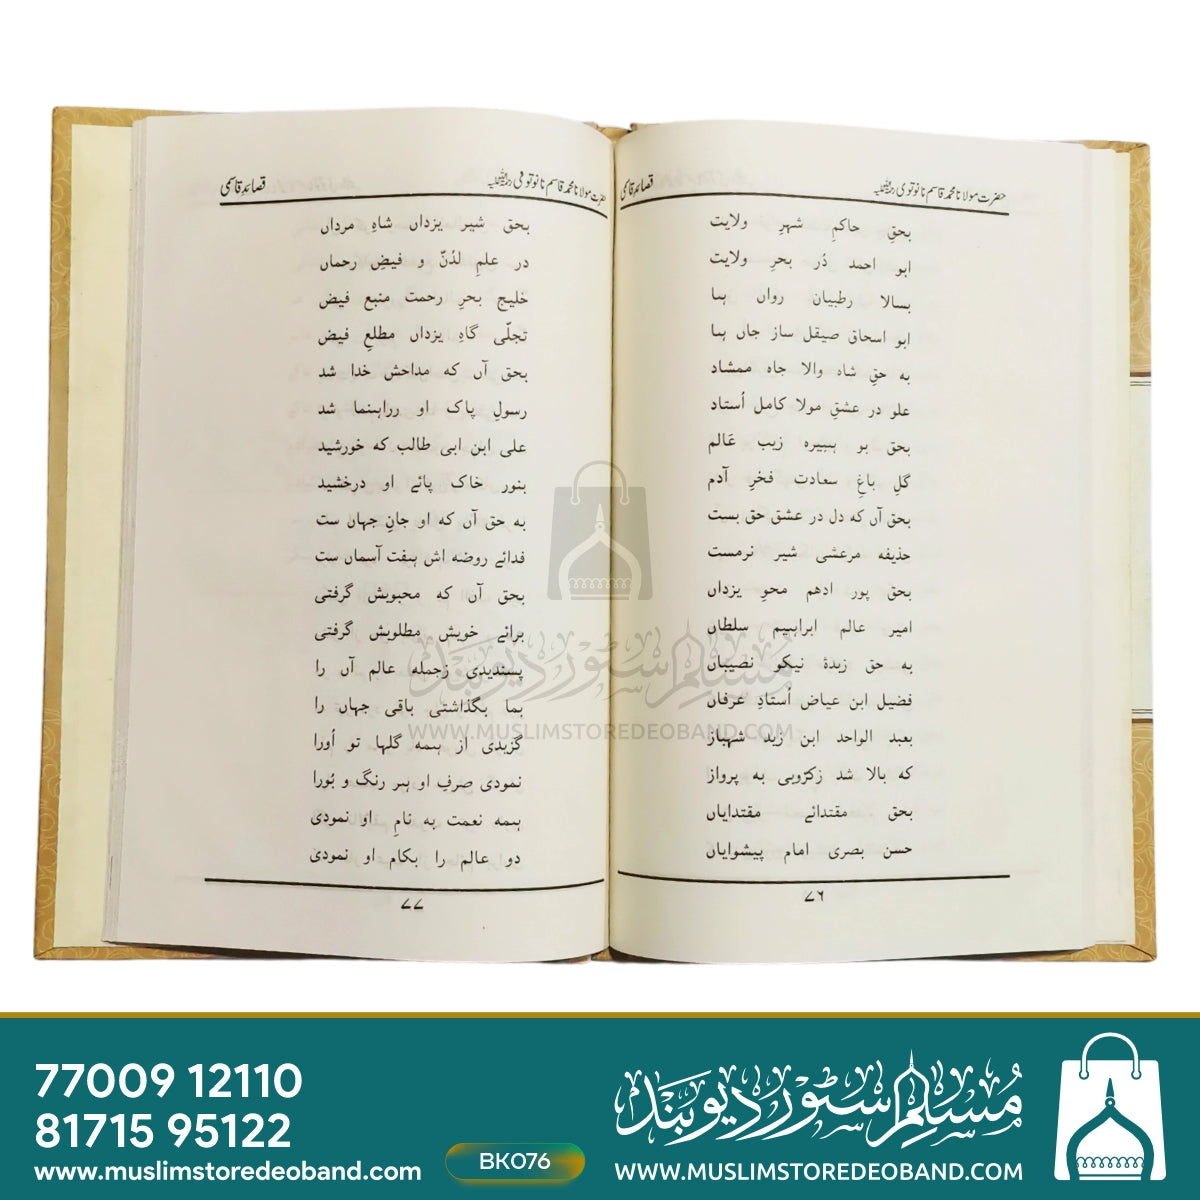 قصائدِ قاسمی حضرت مولانا محمد قاسم نانوتوی
بحقِ حاکمِ شہرِ ولایت
ابو احمد دُر بحرِ ولایت
بسالا رطبیان رواں ہا
ابو اسحاق صیقل ساز جاں ہا
به حقِ شاہ والا جاہ ممشاد
علو در عشقِ مولا کامل اُستاد
بحق بو ہبیرہ زیب عَالم
گلِ باغِ سعادت فخرِ آدم
بحق آں کہ دل در عشق حق بست
حذیفہ مرعشی شیر نرمست
بحق پور ادهم محوِ یزداں
امیر عالم ابراہیم سلطاں
به حق زبدۂ نیکو نصیباں
فضیل ابن عیاض اُستادِ عرفاں
بعبد الواحد ابن زید شهباز
که بالا شد زکرّوبی به پرواز
بحق مقتدائے مقتدایاں
حسن بصری امام پیشوایاں
۷۶
قصائدِ قاسمی حضرت مولانا محمد قاسم نانوتوی
بحق شیر یزداں شاہِ مرداں
در علمِ لدُنّ و فیضِ رحماں
خلیج بحرِ رحمت منبع فیض
تجلّی گاہِ یزداں مطلعِ فیض
بحق آں کہ مداحش خدا شد
رسولِ پاک او رراہنما شد
علی ابن ابی طالب کہ خورشید
بنور خاک پائے او درخشید
به حق آں کہ او جانِ جہاں ست
فدائے روضہ اش ہفت آسماں ست
بحق آں کہ محبوبش گرفتی
برائے خویش مطلوبش گرفتی
پسندیدی زجملہ عالم آں را
بما بگذاشتی باقی جہاں را
گزیدی از ہمہ گلہا تو اُورا
نمودی صرفِ او ہر رنگ و بُورا
ہمہ نعمت به نامِ او نمودی
دو عالم را بکام او نمودی
۷۷
مسلم سٹور دیوبند
WWW.MUSLIMSTOREDEOBAND.COM
77009 12110
81715 95122
www.muslimstoredeoband.com
BK076
مسلم سٹور دیوبند
WWW.MUSLIMSTOREDEOBAND.COM